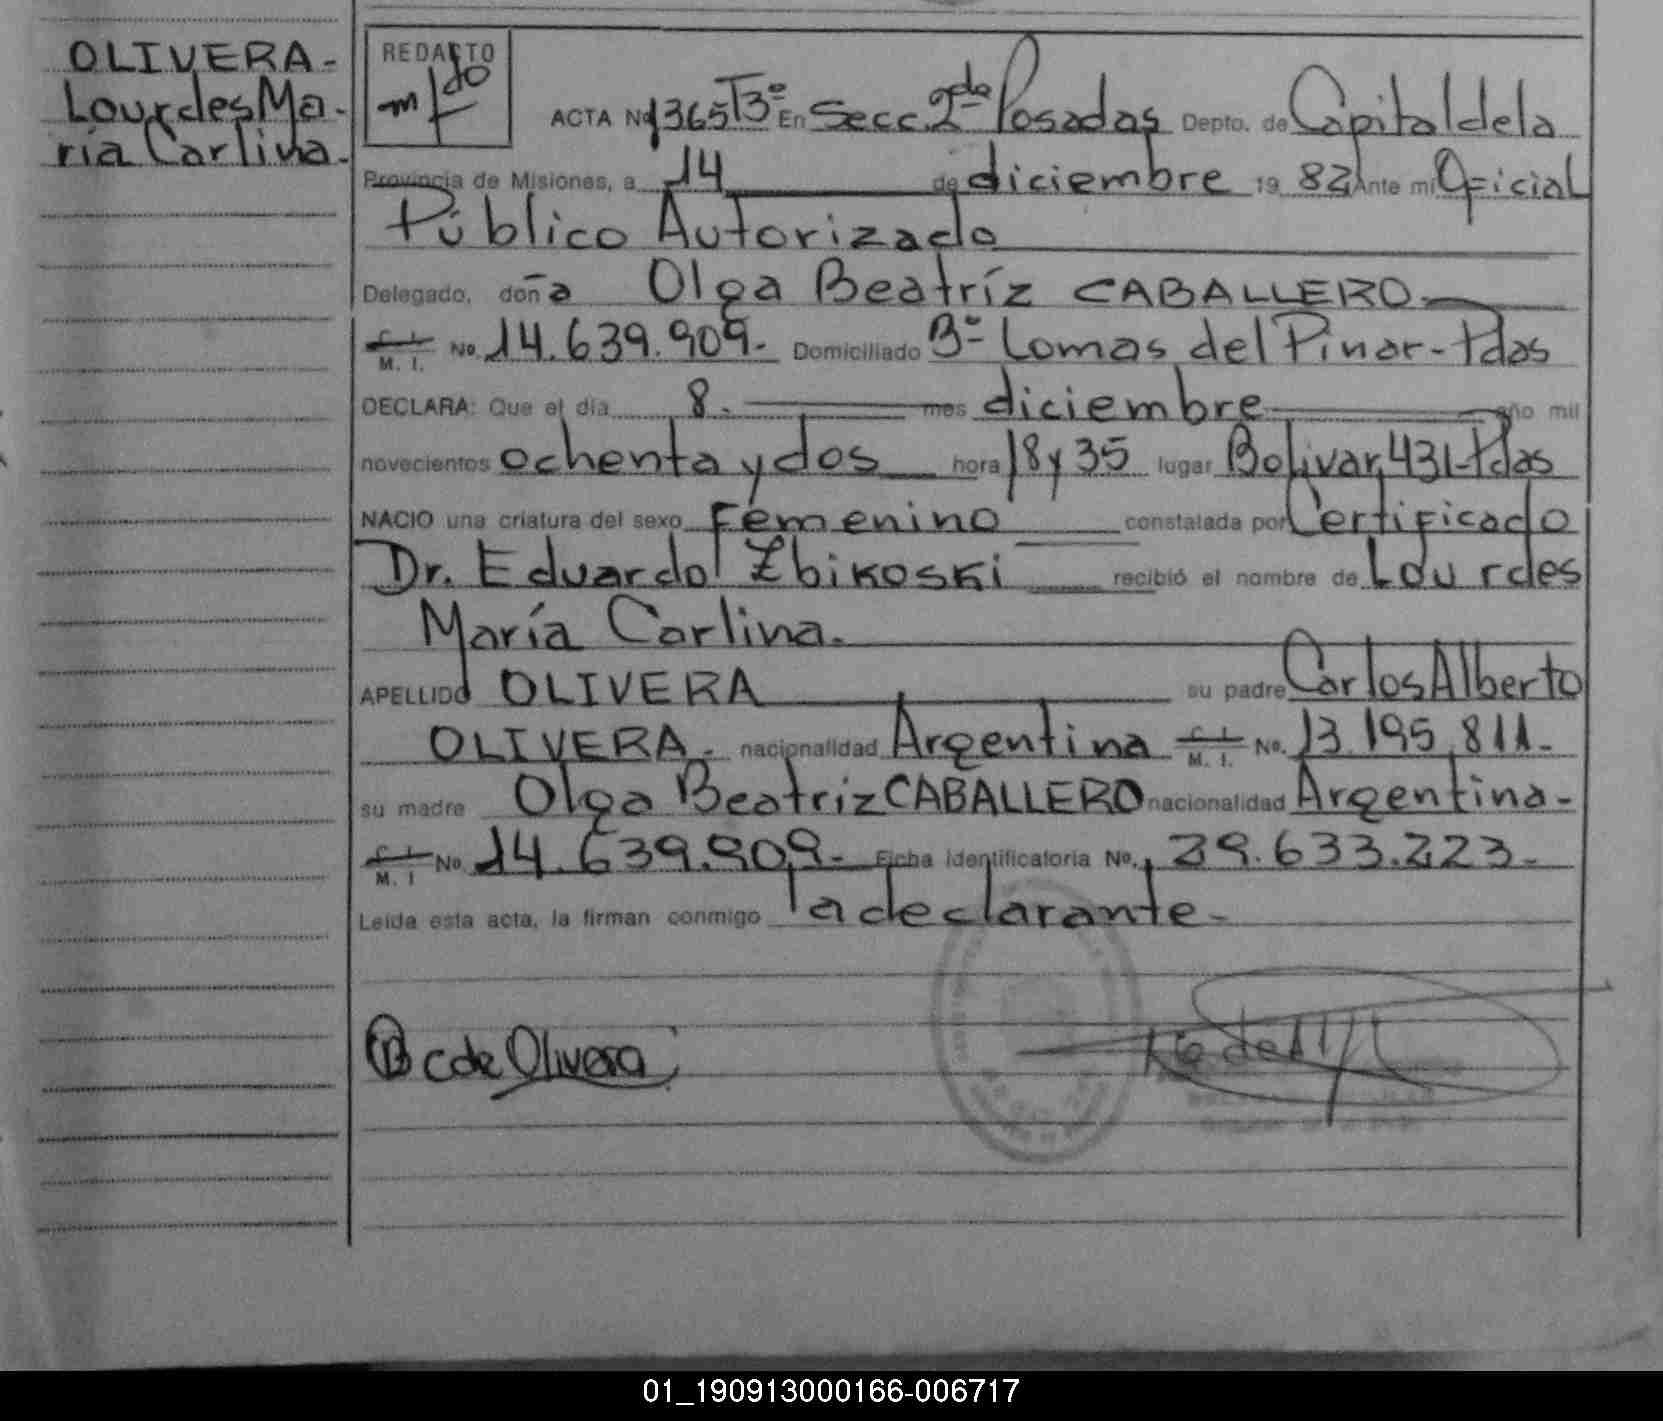 OLIVERA-
Lourdes Ma-
ría Carlina.
REDACTO
ACTA No 1365 Tº3 En Secc. 2da Posadas Depto. de Capital de la
Provincia de Misiones, a 14 de diciembre 19 82 Ante mi Oficial
Público Autorizado
Delegado, doña Olga Beatríz CABALLERO.
C. I.
M. I. No. 14.639.909.- Domiciliado Bº Lomas del Pinar-Pdas
DECLARA: Que el día 8. mes diciembre año mil
novecientos ochenta y dos hora 18 y 35 lugar Bolivar, 431-Pdas
NACIO una criatura del sexo Femenino constatada por Certificado
Dr. Eduardo Zbikoski recibió el nombre de Lourdes
María Carlina.
APELLIDO OLIVERA su padre Carlos Alberto
OLIVERA.- nacionalidad Argentina C. I. M. I. No. 13.195.811.-
su madre Olga Beatriz CABALLERO nacionalidad Argentina.-
C. I. M. I No. 14.639.909.- Ficha identificatoria No. 29.633.223.-
Leída esta acta, la firman conmigo la declarante.-
B C de Olivera
01_190913000166-006717